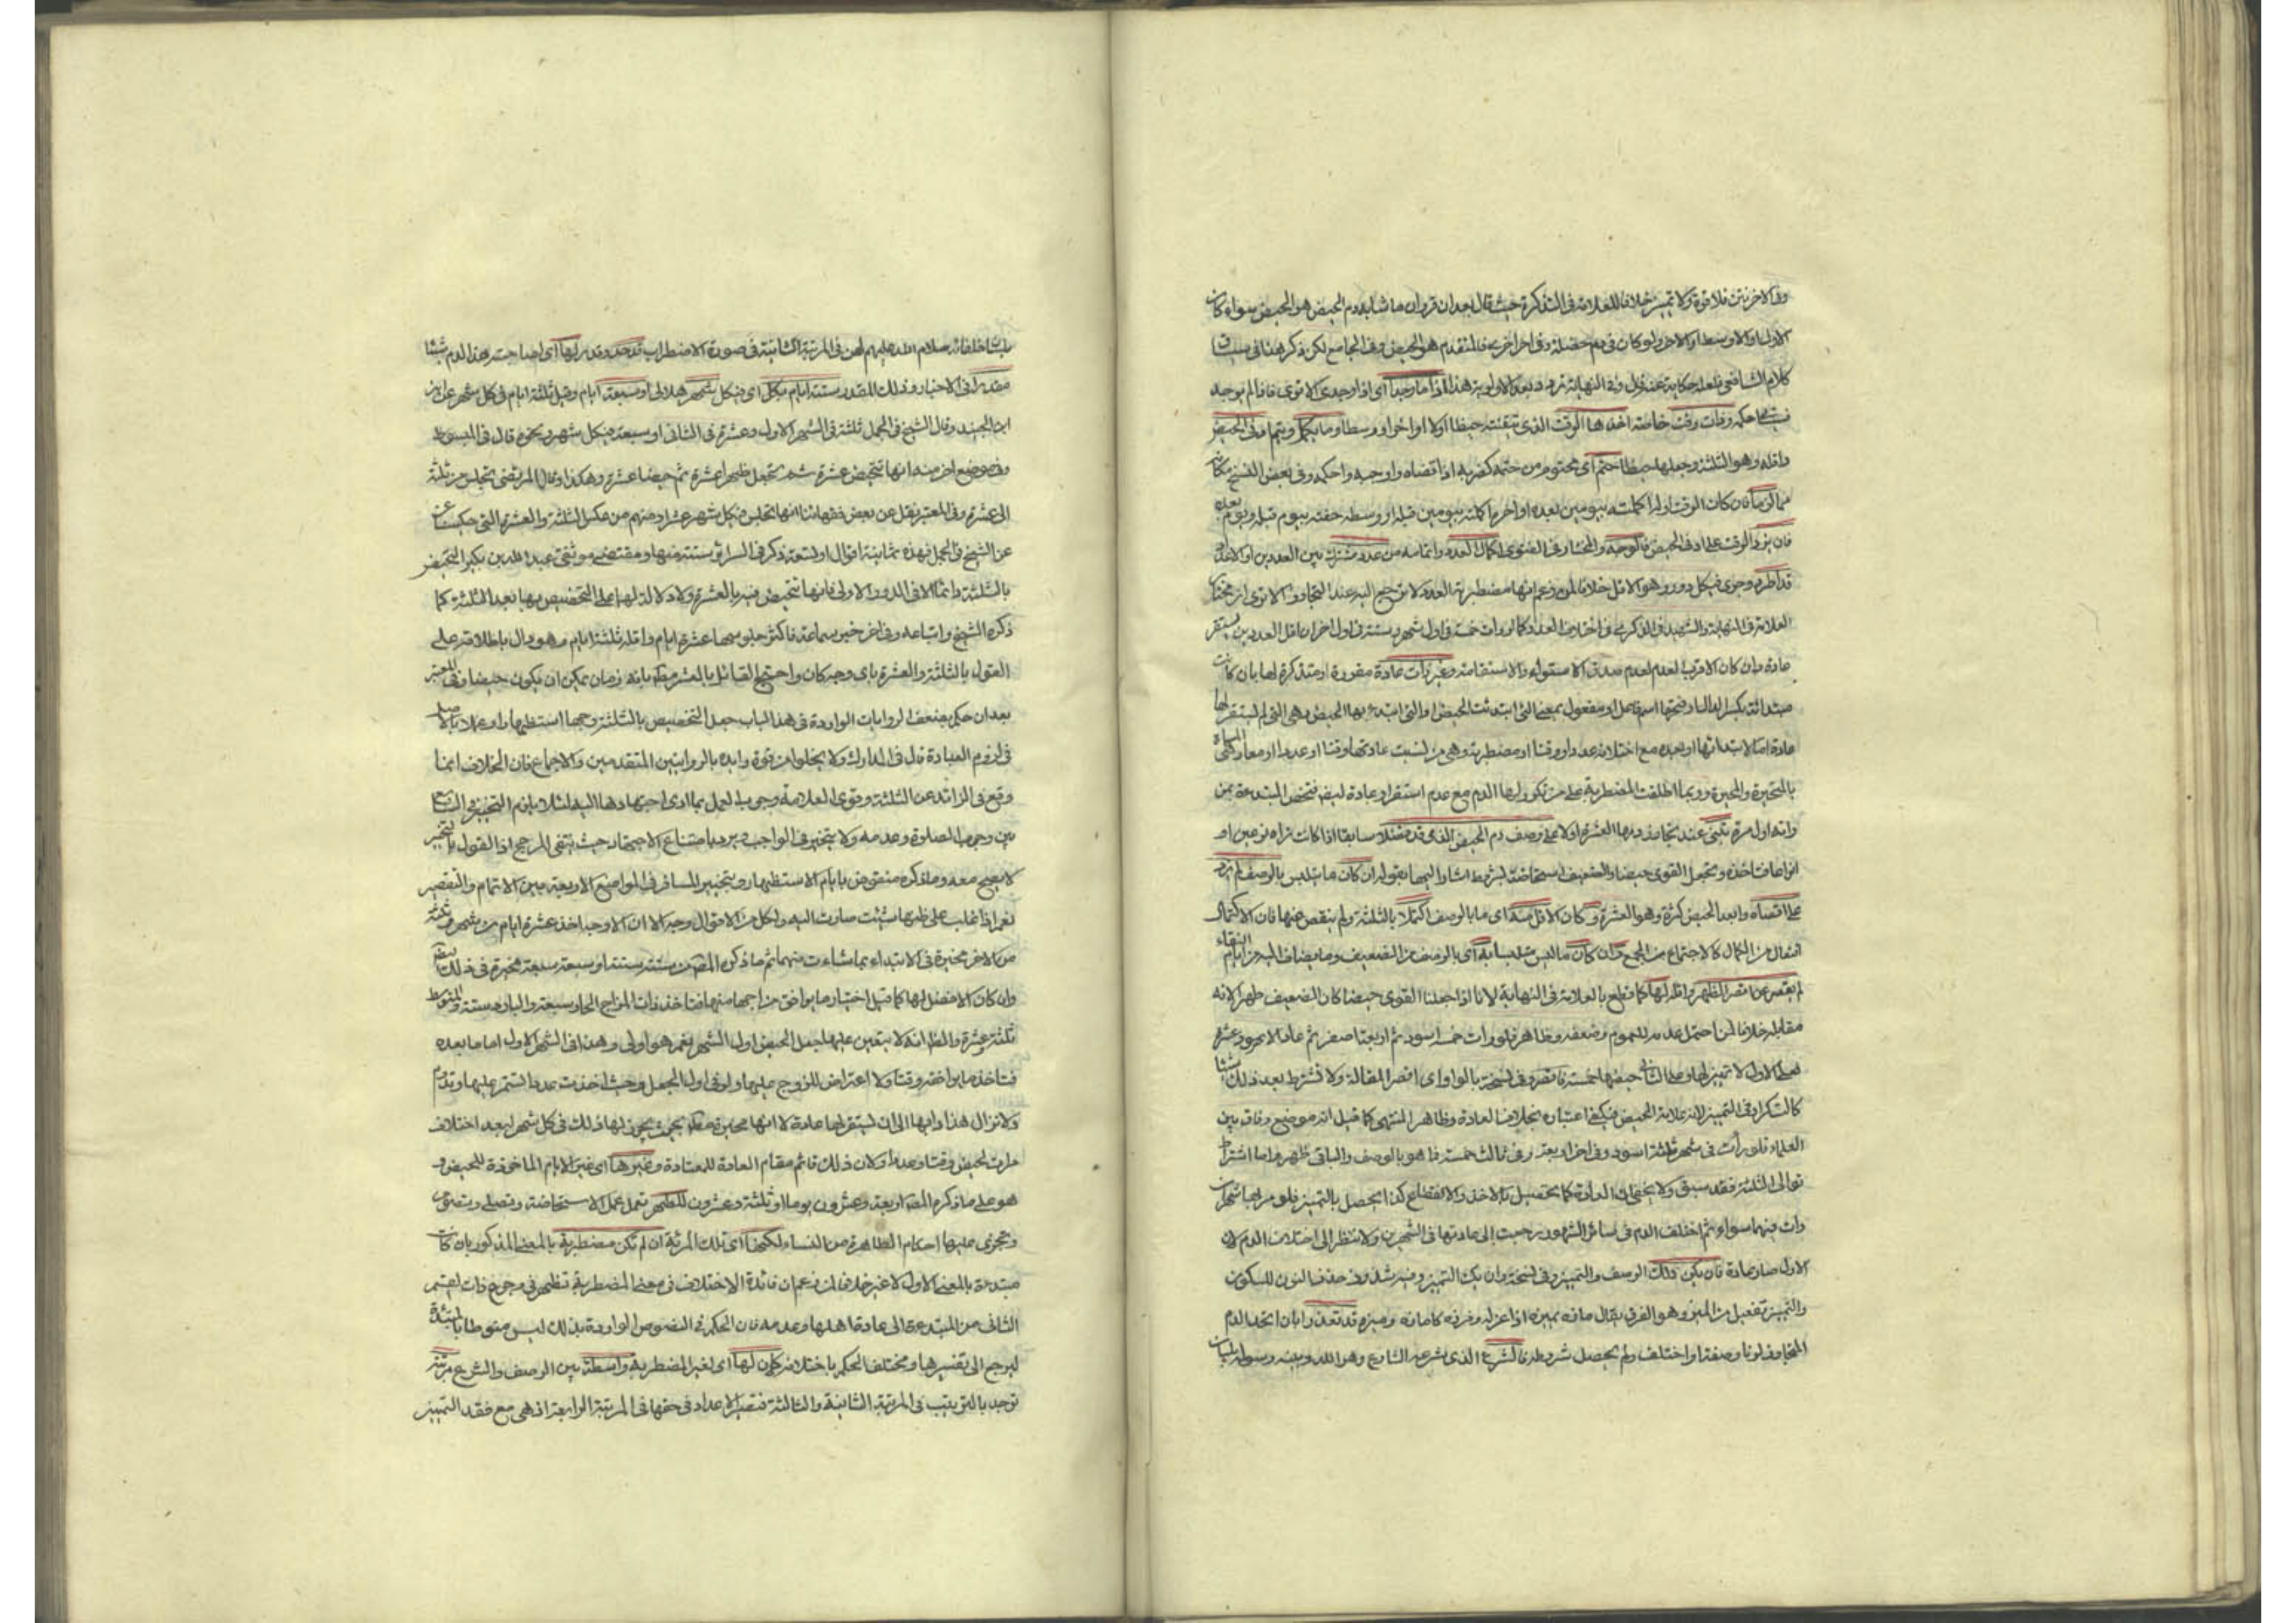 الاخرتين فلا قوة ولا تميز خلافا للعلامة فى التذكرة حيث قال بعد ان قرر ان ما شابه دم الحيض هو الحيض سواء كان
الاول او الاوسط او الاخر ولو كان فى دم خصلة وفى اخر اخرى فالمتقدم هو الحيض وفى الجامع لكن ذكر هذا فى سياق
كلام الشافعى فلعله حكاية عنه قال وفى النهاية تردد بعد الاولوية هذا اذا ما وجدا اى اذا وجدى الاقوى فاذا لم يوجد
حكمه وذات وقت خاصة اخذها الوقت الذى تيقنته حيضا اولا او اخرا او وسطا وما يكمل ويتم ادنى الحيض
واقله وهو الثلثة وجعلها حيضا حتم اى محتوم من حتمه كضربه اذا قضاه واوجبه واحكمه وفى بعض النسخ مكانه
مما لزما فان كان الوقت اولا اكملته بيومين بعده او اخرا اكملته بيومين قبله او وسطه حفته بيوم قبله ويوم بعده
فان يزد الوقت على ادنى الحيض فالوجه والمختار فى الفتوى اكمال العدد واتمامه من عدد مشترك بين العددين او الاعداد
قد اطرد وجرى فى كل دور وهو الاقل خلافا لمن زعم انها مضطربة العدد لا ترجع اليه عند التجاوز والاقوى مختار
العلامة فى النهاية والشهيد فى الذكرى فى اختلاف العدد كما لو رات خمسة فى اول شهر وستة فى اول اخر ان اقل العددين يستقر
عادة وان كان الاقرب لعدم صدق الاستواء والاستقامة وغير ذات عادة مقررة او متذكرة لها بان كانت
مبتدائة بكسر الدال او فتحها اسم فاعل او مفعول بمعنى التى ابتدئت الحيض او التى ابتدء بها الحيض وهى التى لم يستقر لها
عادة اما لابتدائها او بعده مع اختلافه عددا ووقتا او مضطربة وهى من نسيت عادتها وقتا او عددا او معا وهى المسماة
بالمتحيرة والمحيرة وربما اطلقت المضطربة على من تكرر لها الدم مع عدم استقرار عادة ليختص المبتدءة بمن
راته اول مرة تبنى عند تجاوز دمها العشرة اولا على وصف دم الحيض الذى قد مثلا سابقا اذا كانت تراه نوعين او
انواعا فتاخذه وتجعل القوى حيضا والضعيف استحاضة بشروط اشار اليها بقوله ان كان ما يتلبس بالوصف لم يزد
على اقصاه وابعد الحيض كثرة وهو العشرة و كان الاقل منه اى ما بالوصف اكتملا بالثلثة ولم ينقص عنها فان الاكتمال
افتعال من الكمال كالاجتماع من الجمع وان كان ما ليس متلبسا به اى بالوصف من الضعيف وما يضاف اليه من ايام النقاء
لم يقصر عن اقصر الطهر واقله لها كما قطع به العلامة فى النهاية لانا اذا جعلنا القوى حيضا كان الضعيف طهرا لانه
مقابله خلافا لمن احتمل عدمه للعموم وضعفه ظاهر فلو رات خمسة اسود ثم اربعة اصفر ثم عاد الاسود عشرة
فعلى الاول لا تميز لها وعلى الثانى حيضها خمسة فاقصر وفى نسخة بالواو اى اقصر المقالة ولا تشترط بعد ذلك شيئا
كالتكرار فى التمييز لانه علامة الحيض فيكفى اعتباره بخلاف العادة وظاهر المنتهى كما قيل انه موضع وفاق بين
العلماء فلو رأت فى شهر ثلثة اسود وفى اخر اربعة وفى ثالث خمسة فما هو بالوصف والباقى طهر واما اشتراط
توالى الثلثة فقد سبق ولا يخفى ان العادة كما تحصيل بالاخذ والانقطاع كذا يحصل بالتميز فلو مر بها شهران
رات فيهما سواء ثم اختلف الدم فى سائر الشهور رجعت الى عادتها فى الشهرين ولا تنظر الى اختلاف الدم لان
الاول صار عادة فان يكن ذلك الوصف والتمييز وفى نسخة وان يك التمييز وفيه شذوذ حذف النون للسكون
والتمييز تفعيل من الميز وهو الفرق يقال مازه يميزه اذا عزله وفرزه كامازه وميزه قد تعذرا بان اتحد الدم
المتجاوز لونا وصفة او اختلف ولم يحصل شروطه فالشرع الذى شرعه الشارع وهو الله ونبيه ورسوله بلسان
بلسان خلفائه سلام الله عليهم لهن فى المرتبة الثانية فى صورة الاضطراب قد حد وقدر لها اى لصاحبة هذا الدم شيئا
مقدرا فى الاخبار وذلك المقدر ستة ايام بكل اى فى كل شهر هلالى او سبعة ايام وقيل ثلثة ايام فى كل شهر عن
ابن الجنيد وقال الشيخ فى الجمل ثلثة فى الشهر الاول وعشرة فى الثانى او سبعة فى كل شهر ونحوه قال فى المبسوط
وفى موضع اخر منه انها تتحيض عشرة ثم تجعل طهرا عشرة ثم حيضا عشرة وهكذا وقال المرتضى تجلس من ثلثة
الى عشرة وفى المعتبر نقل عن بعض فقهائنا انها تجلس فى كل شهر عشرا ومنهم من عكس الثلثة والعشرة التى حكيت
عن الشيخ فى الجمل فهذه ثمانية اقوال او تسعة ذكر فى السرائر ستة منها ومقتضى موثقى عبد الله بن بكير التحيض
بالثلثة دائما الا فى الدور الاولى فانها تتحيض فيه بالعشرة ولا دلالة لهما على التخصيص بها بعد الثلثة كما
ذكره الشيخ واتباعه وفى اخر خبر سماعة فاكثر جلوسها عشرة ايام واقله ثلثة ايام وهو دال باطلاقه على
القول بالثلثة والعشرة باى وجه كان واحتج القائل بالعشر مطلقا بانه زمان يمكن ان يكون حيضا وفى المعتبر
بعد ان حكم بضعف الروايات الواردة فى هذا الباب جعل التخصيص بالثلثة وجها استظهارا وعملا بالاصل
فى لزوم العبادة قال فى المدارك ولا يخلوا من قوة وايده بالروايتين المتقدمتين والاجماع فان الخلاف انما
وقع فى الزائد عن الثلثة وقوى العلامة وجوب العمل بما ادى اجتهادها اليه لئلا يلزم التخيير فى
بين وجوب الصلوة وعدمه ولا يتخير فى الواجب ويرد بامتناع الاجتهاد حيث ينتفى المرجح اذا القول بالتخيير
لا يصح معه وما ذكره منقوض بايام الاستظهار وبتخيير المسافر فى المواضع الاربعة بين الاتمام والتقصير
نعم اذا غلب على ظنها شيئت صارت اليه ولكل من الاقوال وجه الا ان الاوجه اخذ عشرة ايام من شهر وثلثة
من الاخر مخيرة فى الابتداء بما شاءت منهما ثم ما ذكره المصنف من ستة ستة او سبعة سبعة مخيرة فى ذلك
وان كان الافضل لها كما قيل اختيار ما يوافق مزاجها منها فتاخذ ذات المزاج الحار سبعة والبارد ستة والمتوسط
ثلثة عشرة والظ انه لا يتعين عليها جعل الحيض اول الشهر نعم هو اولى وهذا فى الشهر الاول اما ما بعده
فتاخذ ما يوافقه وقتا ولا اعتراض للزوج عليها ولو فى اول الجعل وحيث اخذت عددا تستمر عليها وتدوم
ولا تزال هذا دابها الى ان تستقر لها عادة لا انها مخيرة بحيث يجوز لها ذلك فى كل شهر لبعد اختلاف
مرات الحيض وقتا وعددا ولان ذلك قائم مقام العادة للمعتادة وغيرها اى غير الايام الماخوذة للحيض و
هو على ما ذكره المص اربعة وعشرون يوما او ثلثة وعشرون للطهر تعمل عمل الاستحاضة وتصلى وتصوم
وتجرى عليها احكام الطاهرة من النساء لكنها اى تلك المرئة ان لم تكن مضطربة بالمعنى المذكور بان كانت
مبتدءة بالمعنى الاول لا غير خلافا لمن زعم ان فائدة الاختلاف فى معنى المضطربة تظهر فى رجوع ذات القسم
الثانى من المبتدءة الى عادة اهلها وعدمه فان الحكم فى النصوص الواردة بذلك ليس منوطا بالمبتدئة
ليرجع الى تفسيرها ومختلف الحكم باختلافه كان لها اى لغير المضطربة واسطة بين الوصف والشرع مرتبة
توجد بالترتيب فى المرتبة الثانية والثالثة فتصير الاعداد فى حقها فى المرتبة الرابعة اذ هى مع فقد التميز